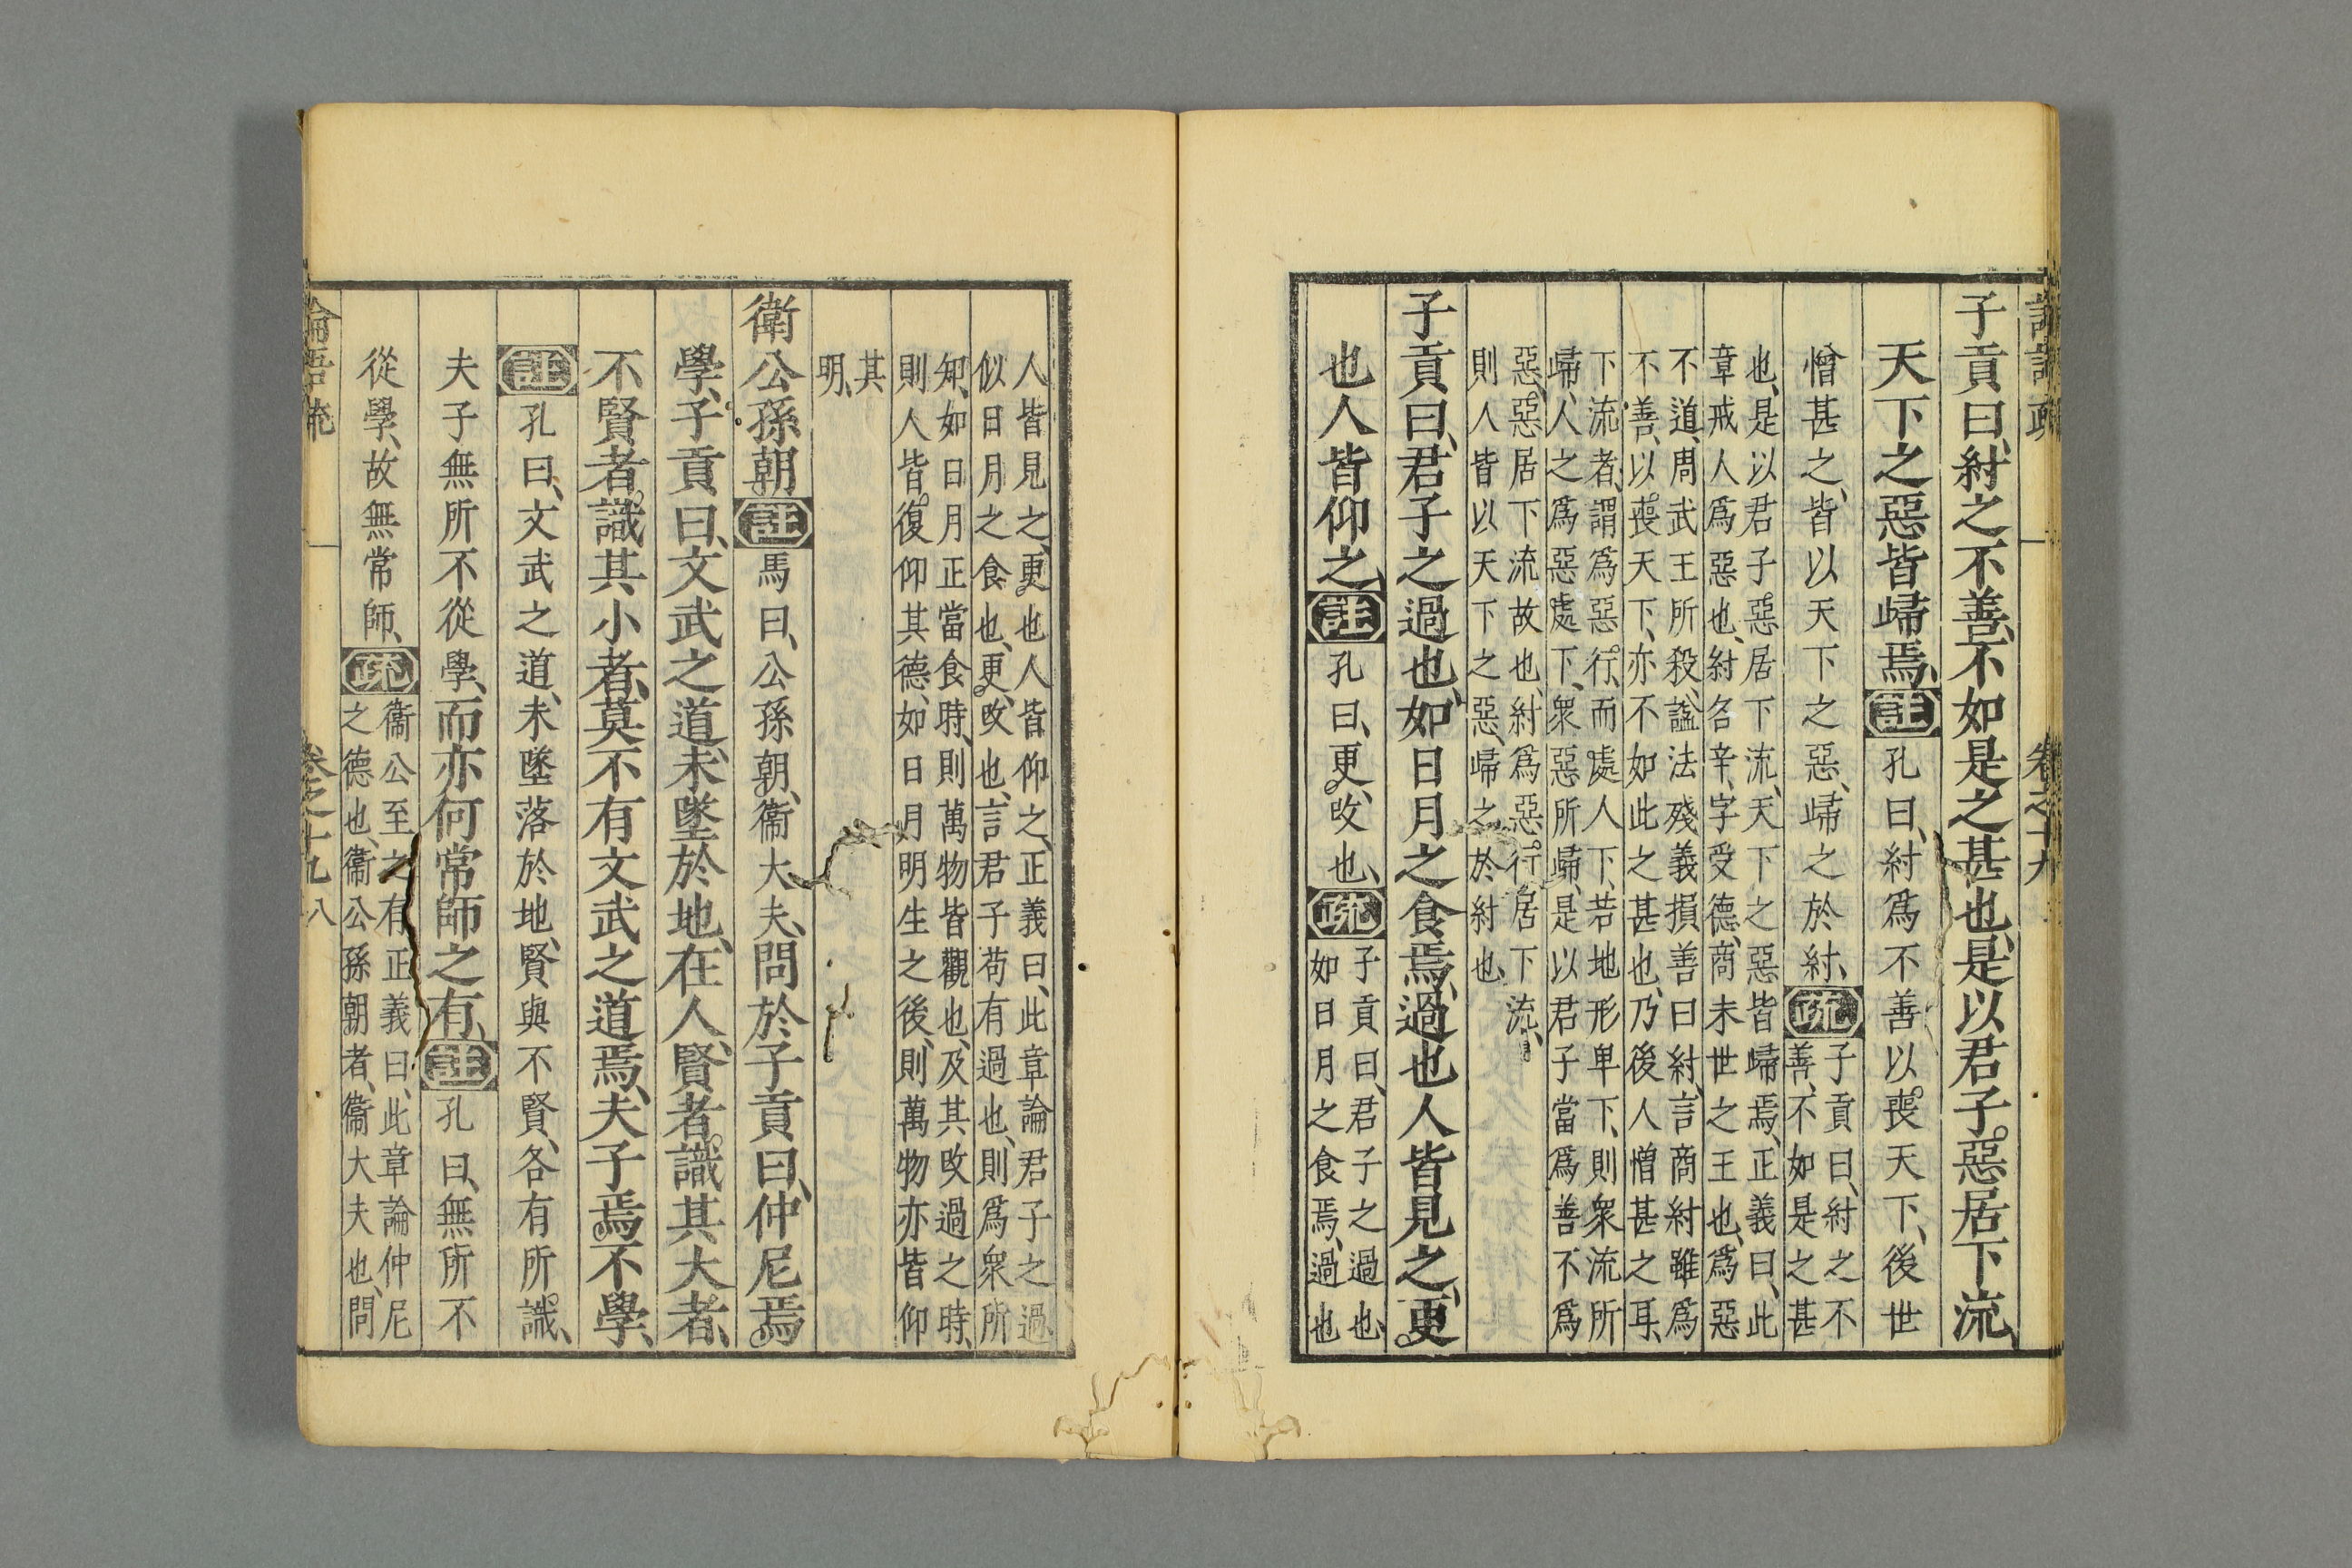 子貢曰、紂之不善、不如是之甚也、是以君子惡居下流、
天下之惡皆歸焉、註孔曰、紂爲不善以喪天下、後世
憎甚之、皆以天下之惡、歸之於紂、疏子貢曰、紂之不
善、不如是之甚
也、是以君子惡居下流、天下之惡皆歸焉、正義曰、此
章戒人爲惡也、紂名辛、字受德、商末世之王也、爲惡
不道、周武王所殺、諡法殘義損善曰紂、言商紂雖爲
不善、以喪天下、亦不如此之甚也、乃後人憎甚之耳、
下流者、謂爲惡行、而處人下、若地形卑下、則衆流所
歸、人之爲惡處下、衆惡所歸、是以君子當爲善不爲
惡、惡居下流故也、紂爲惡行居下流、
則人皆以天下之惡、歸之於紂也、
子貢曰、君子之過也、如日月之食焉、過也人皆見之、更
也人皆仰之、註孔曰、更、改也、疏子貢曰、君子之過也、
如日月之食焉、過也
人皆見之、更也人皆仰之、正義曰、此章論君子之過
似日月之食也、更、改也、言君子苟有過也、則爲衆所
知、如日月正當食時、則萬物皆觀也、及其改過之時、
則人皆復仰其德、如日月明生之後、則萬物亦皆仰
其
明、
衛公孫朝註馬曰、公孫朝、衞大夫、問於子貢曰、仲尼焉
學、子貢曰、文武之道、未墜於地、在人、賢者識其大者、
不賢者識其小者、莫不有文武之道焉、夫子焉不學、
註孔曰、文武之道、未墜落於地、賢與不賢、各有所識、
夫子無所不從學、而亦何常師之有、註孔曰、無所不
從學、故無常師、疏衞公至之有正義曰、此章論仲尼
之德也、衞公孫朝者、衞大夫也、問
論吾疏 卷之十九 八